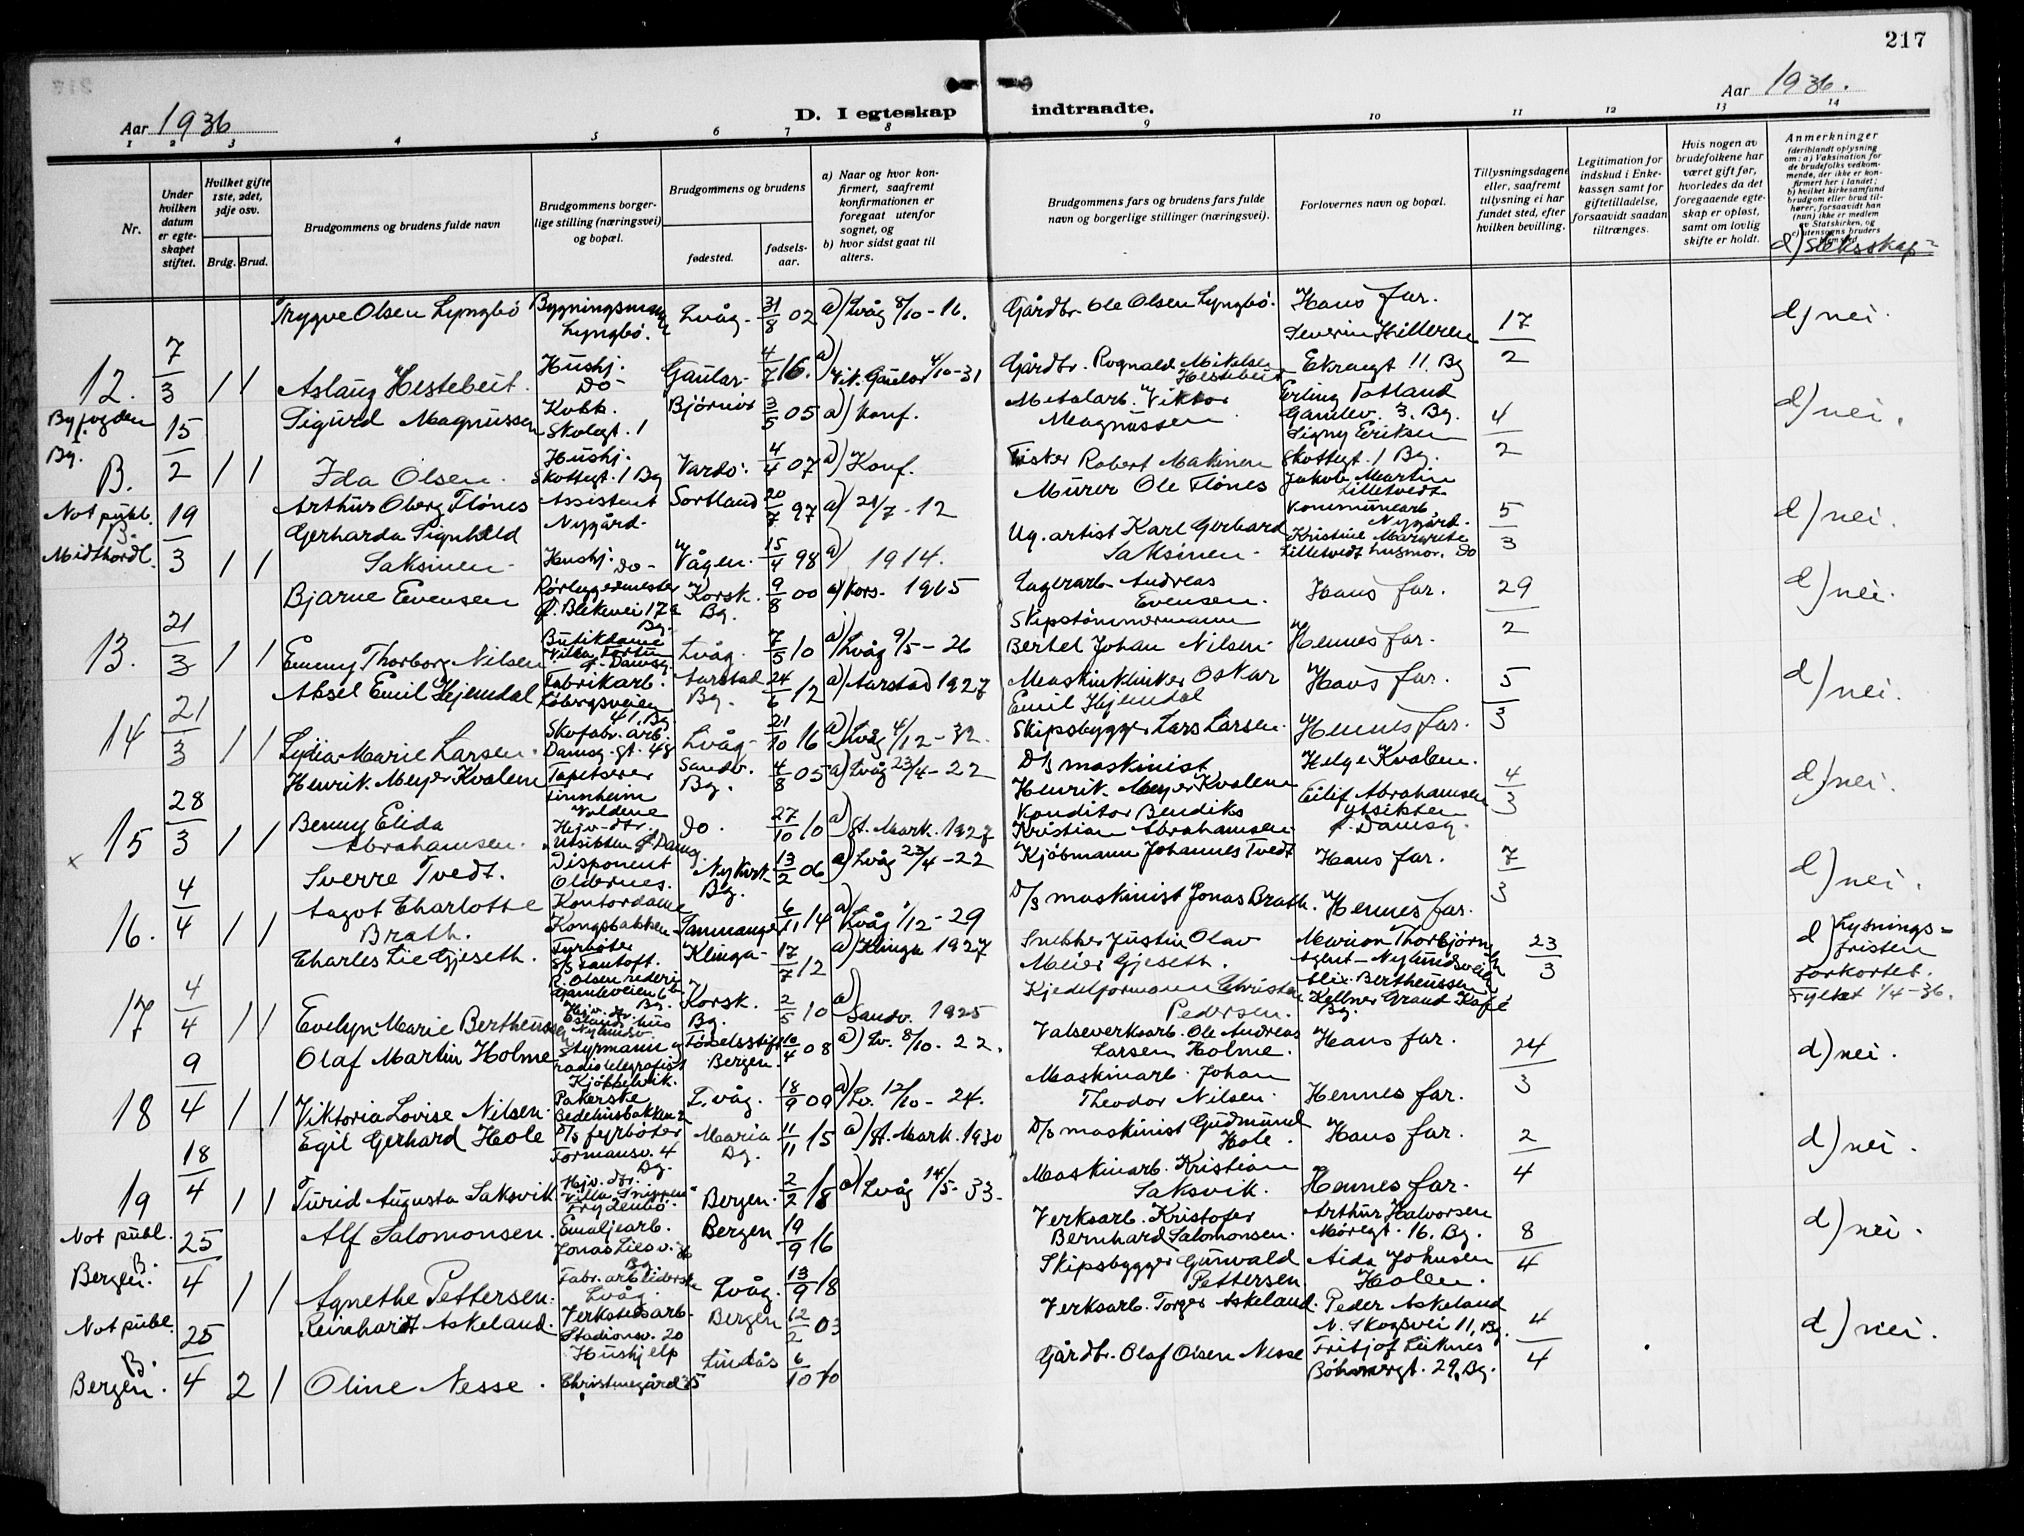 217
Aar 1936
D. I egteskap indtraadte.
Aar 1936.
1 2 3 4 5 6 7 8 9 10 11 12 13 14
Nr.
Under hvilken datum er egteskapet stiftet.
Hvilket gifte 1ste, 2det, 3dje osv.
Brdg. Brud.
Brudgommens og brudens fulde navn
Brudgommens borgerlige stilling (næringsvei) og bopæl.
Brudgommens og brudens
fødested.
fødselsaar.
a) Naar og hvor konfirmert, saafremt konfirmationen er foregaat utenfor sognet, og
b) hvor sidst gaat til alters.
Brudgommens fars og brudens fars fulde navn og borgerlige stillinger (næringsvei).
Forlovernes navn og bopæl.
Tillysningsdagene eller, saafremt tillysning ei har fundet sted, efter hvilken bevilling.
Legitimation for indskud i Enkekassen samt for giftetilladelse, forsaavidt saadan tiltrænges.
Hvis nogen av brudefolkene har været gift før, hvorledes da det foregaaende egteskap er opløst, samt om lovlig skifte er holdt.
Anmerkninger
(deriblandt oplysning om: a) Vaksination for de brudefolks vedkommende, der ikke er konfirmert her i landet;
b) hvilket kirkesamfund brudgom eller brud tilhører, forsaavidt han (hun) ikke er medlem av Statskirken, og
d) Slektskap
Trygve Olsen Lyngbø Bygningsmann Lyngbø. Lvåg 31/8 02 a) Lvåg 8/10-16. Gårdbr. Ole Olsen Lyngbø. Hans far. 17/2 d) nei.
12. 7/3 1 1 Aslaug Hestebeit. Hushj. Do Gaular 4/7 16. a) Vik. Gaular 4/10-31 Gårdbr. Rognald Mikelsen Hestebeit Severin Hilleren Ekregt 11 Bg
Byfogden Bg. B. 15/2 1 1 Sigurd Magnussen Kokk. Skolegt. 1 Bjørnør 3/5 05 a) Konf. Metalarb. Viktor Magnussen Erling Totland Gamlev. 3. Bg. 4/2 d) nei.
Ida Olsen. Hushj. Skottegt. 1 Bg Vardø. 4/4 07 a) Konf. Fisker Robert Makinen Signy Eriksen Skottegt. 1 Bg.
Not. publ. B. Midthordl. 19/3 1 1 Arthur Oberg Flönes Assistent Nygård Sortland 20/7 97 a) 21/7-12 Murer Ole Flönes Jakob Martin Lilletvedt Kommunearb. Nygård. 5/3 d) nei.
Gerharda Signhild Saksinen Hushj. do Vågen. 15/4 98 a) 1914. Ug. artist Karl Gerhard Saksinen Kristine Margrete Lilletvedt husmor. Do
Bjarne Evensen Rørleggermester f. Blekevei 17a Bg. Korsk. Bg. 9/8 00 a) Kors. 1915 Lagerarb. Andreas Evensen. Hans far. 29/2 d) nei.
13. 21/3 1 1 Emmy Thorborg Nilsen Butikdame Villa Fortun f. Damsg. Lvåg. 7/5 10 a) Lvåg 9/5-26 Skipstømmermann Bertel Johan Nilsen. Hennes far.
Aksel Emil Hjemdal Fabrikarb. Løbergsveien 41. Bg. Aarstad Bg. 24/6 12 a) Aarstad 1927 Maskinklinker Oskar Emil Hjemdal Hans far. 5/3 d) nei.
14 21/3 1 1 Lydia Marie Larsen. Skofabr. arb. Damsg. gt. 48 Lvåg 21/10 16 a) Lvåg 4/12-32. Skipsbygger Lars Larsen. Hennes far.
Henrik Meyer Kvalem Tapetserer Finnheim Sandv. Bg. 4/8 05 a) Lvåg 23/4-22 D/s maskinist Henrik Meyer Kvalem Helge Kvalem. 4/3 d) nei.
x 15 28/3 1 1 Benny Elida Abrahamsen. Hejv. dtr. Utsikten f. Damsg. do. 27/10 10 a) St. Mark. 1927 Konditor Bendiks Kristian Abrahamsen Eilif Abrahamsen Utsikten f. Damsg.
Sverre Tvedt. Disponent Oldernes. Nykirk. Bg. 13/2 06 a) Lvåg 23/4-22 Kjøbmann Johannes Tvedt Hans far. 7/3 d) nei.
16. 4/4 1 1 Aagot Charlotte Brath. Kontordame Kongsbakken Tammanger 6/11 14 a) Lvåg 1/12-29 D/s maskinist Jonas Brath. Hennes far.
Charles Lie Gjeseth. Fyrbøter S/s Fantoft. Gamleveien 6 b Bg. Klinga 17/7 12 a) Klinga 1927 Snekker Justin Olav Meier Gjeseth. Marion Thorbjørn Agent Nylundsveien 23/3 d) Lysningsfristen forkortet. Fylket 1/4-36.
17 4/4 1 1 Evelyn Marie Bertheussen Hejv. dtr. Nylundsv. Korsk. Bg. 2/5 10 a) Sandv. 1925 Kjedelformann Christen Pedersen. Alix Bertheussen Kellner Grand Kafé Bg.
Olaf Martin Holme Styrmann og radiotelegrafist Kjøkkelvik. Fødselsstift. Bergen. 10/4 08 a) Lv. 8/10-22. Valseverksarb. Ole Andreas Larsen Holme. Hans far. 24/3 d) nei.
18 9/4 1 1 Viktoria Lovise Nilsen. Pakerske Bedehusbakken 2 L.våg. 18/9 09 a) Lv. 12/10-24. Maskinarb. Johan Theodor Nilsen. Hennes far.
Egil Gerhard Hole D/s fyrbøter Formansv. 4 Bg. Maria Bg. 11/11 15 a) St. Mark. 1930 D/s maskinist Gudmund Hole. Hans far. 2/4 d) nei.
19 18/4 1 1 Turid Augusta Saksvik Hejv. dtr. Frydenbø. Bergen. 2/2 18 a) Lvåg 14/5-33. Maskinarb. Kristian Saksvik. Hennes far.
Not publ. B. Bergen. 25/4 1 1 Alf Salomonsen. Emaljearb. Jonas Lies v. Bg. Bergen 19/9 16 Verksarb. Kristofer Bernhard Salomonsen. Arthur Halvorsen Møregt. 16. Bg. 8/4 d) nei.
Agnethe Pettersen. Fabr. arbeiderske Lvåg. Lvåg. 13/9 18 Skipsbygger Gunvald Pettersen. Aida Johnsen Holen.
Not publ. B. Bergen. 25/4 2 1 Reinhardt Askeland. Verkstedsarb. Stadionv. 20 Bergen 12/2 03 Verksarb. Torger Askeland. Peder Askeland N. Skogsvei 11, Bg. 4/4 d) nei.
Oline Nesse. Hushjelp Christinegård 25 Lindås 6/10 10 Gårdbr. Olaf Olsen Nesse Fritjof Leiknes Bøhmergt. 29, Bg.